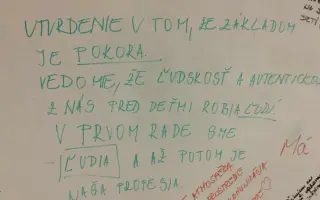 UTVRDENIE V TOM, ŽE ZÁKLADOM
JE POKORA.
VEDOMIE, ŽE ĽUDSKOSŤ A AUTENTICKOSŤ
Z NÁS PRED DEŤMI ROBIA ĽUDÍ.
V PRVOM RADE SME
ĽUDIA A AŽ POTOM JE
NAŠA PROFESIA
Má
ATMOSFÉRA